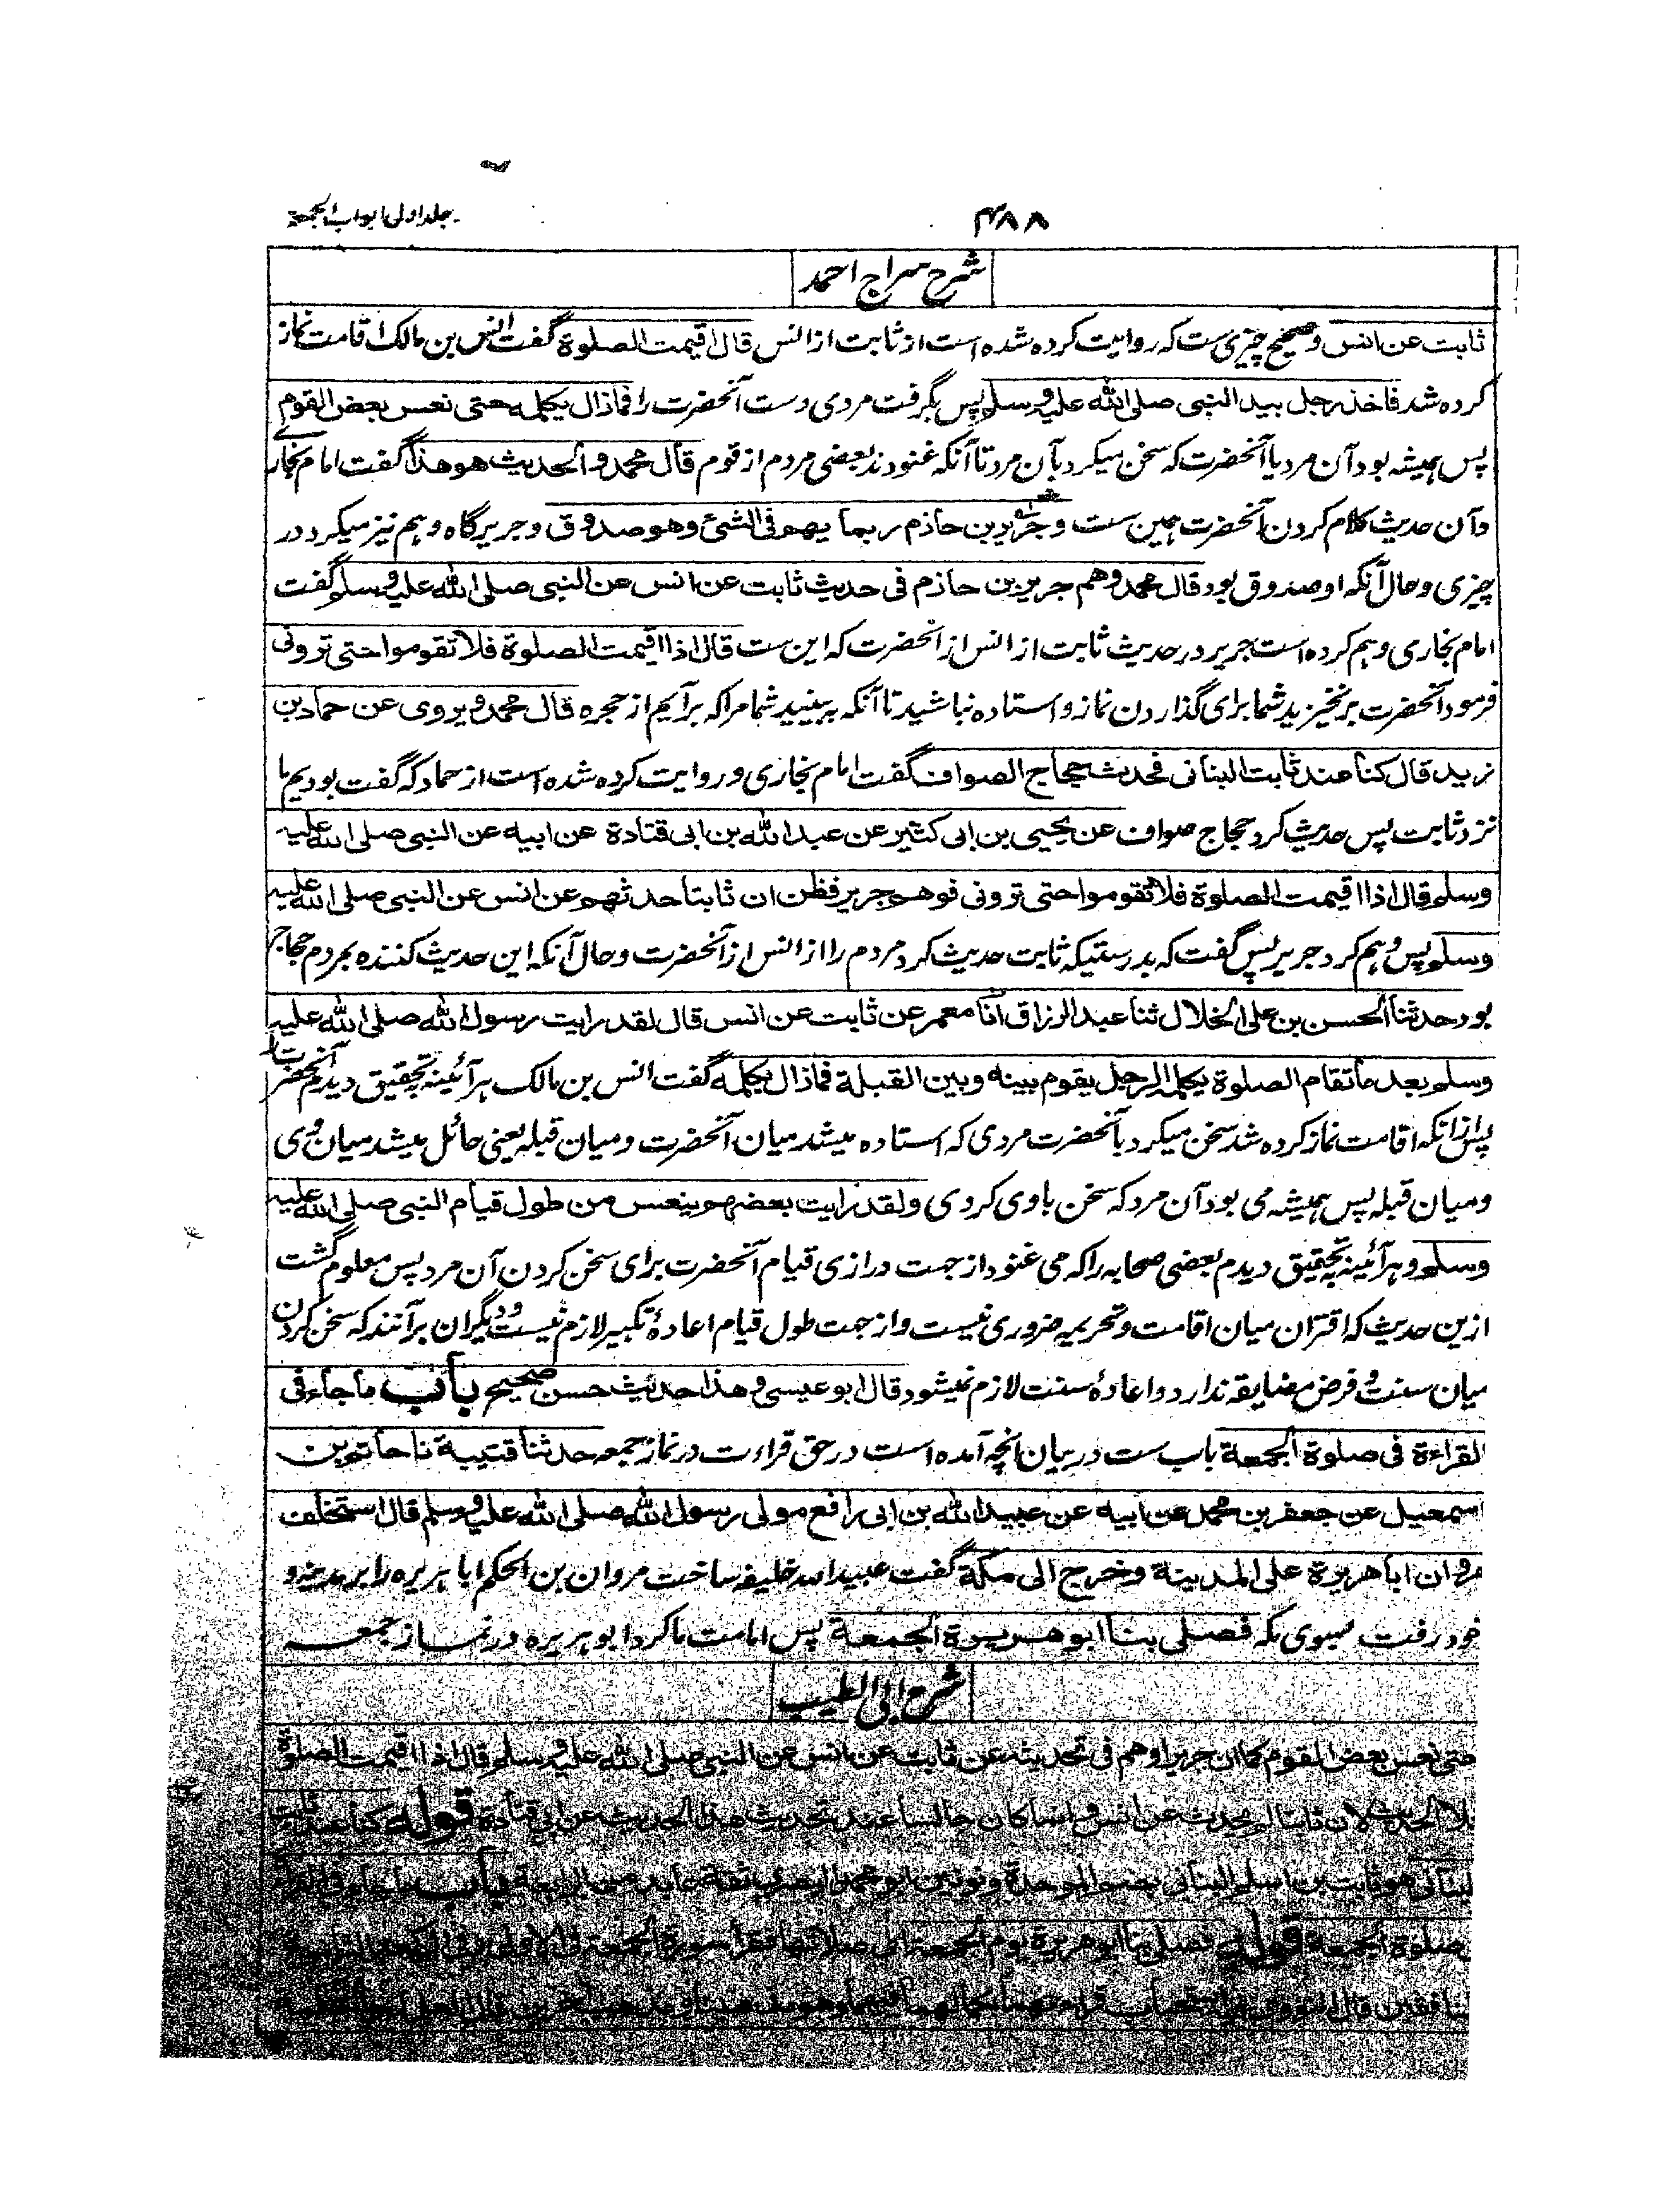 ۴۸۸
جلد اول ابواب الجمعة
شرح سراج احمد
ثابت عن انس وصحیح چیزی ست که روایت کرده شده است از ثابت از انس قال اقیمت الصلوة گفت انس بن مالک اقامت نماز
کرده شد فاخذ رجل بید النبی صلی الله علیه وسلم پس بگرفت مردی دست آنحضرت را فمازال یکلمه حتی نعس بعض القوم
پس همیشه بود آن مرد با آنحضرت که سخن میکرد بآن مرد تا آنکه غنودند بعضی مردم از قوم قال محمد والحدیث هو هذا گفت امام بخاری
و آن حدیث کلام کردن آنحضرت همین ست وجریر بن حازم ربما یهم فی الشئ وهو صدوق و جریر گاه وهم نیز میکرد در
چیزی و حال آنکه او صدوق بود قال محمد وهم جریر بن حازم فی حدیث ثابت عن انس عن النبی صلی الله علیه وسلم گفت
امام بخاری وهم کرده است جریر در حدیث ثابت از انس از آنحضرت که این ست قال اذا اقیمت الصلوة فلا تقوموا حتی ترونی
فرمود آنحضرت برنخیزید شما برای گذاردن نماز و استاده نباشید تا آنکه به بینید شما مرا که برآیم از حجره قال محمد ویروی عن حماد بن
زید قال کنا عند ثابت البنانی فحدث حجاج الصواف گفت امام بخاری و روایت کرده شده است از حماد که گفت بودیم ما
نزد ثابت پس حدیث کرد حجاج صواف عن یحیی بن ابی کثیر عن عبد الله بن ابی قتادة عن ابیه عن النبی صلی الله علیه
وسلم قال اذا اقیمت الصلوة فلا تقوموا حتی ترونی فوهم جریر فظن ان ثابتا حدثهم عن انس عن النبی صلی الله علیه
وسلم پس وهم کرد جریر پس گفت که بدرستیکه ثابت حدیث کرد مردم را از انس از آنحضرت و حال آنکه این حدیث کننده بمردم حجاج
بود حدثنا الحسن بن علی الخلال ثنا عبد الرزاق انا معمر عن ثابت عن انس قال لقد رایت رسول الله صلی الله علیه
وسلم بعد ما تقام الصلوة یکلمه الرجل یقوم بینه وبین القبلة فمازال یکلمه گفت انس بن مالک هرآئینه بتحقیق دیدم آنحضرت را
پس ازانکه اقامت نماز کرده شد سخن میکرد بآنحضرت مردی که استاده میشد میان آنحضرت و میان قبله یعنی حائل میشد میان وی
و میان قبله پس همیشه می بود آن مرد که سخن باوی کردی ولقد رایت بعضهم ینعس من طول قیام النبی صلی الله علیه
وسلم و هرآئینه بتحقیق دیدم بعضی صحابه را که می غنود از جهت درازی قیام آنحضرت برای سخن کردن آن مرد پس معلوم گشت
ازین حدیث که اقتران میان اقامت و تحریمه ضروری نیست و از جهت طول قیام اعادهٔ تکبیر لازم نیست و دیگران برآنند که سخن کردن
میان سنت و فرض مضایقه ندارد و اعادهٔ سنت لازم نمیشود قال ابو عیسی وهذا حدیث حسن صحیح باب ما جاء فی
القراءة فی صلوة الجمعة باب ست در بیان آنچه آمده است در حق قراءت در نماز جمعه حدثنا قتیبة نا حاتم بن
اسمعیل عن جعفر بن محمد عن ابیه عن عبید الله بن ابی رافع مولی رسول الله صلی الله علیه وسلم قال استخلف
مروان ابا هریرة علی المدینة وخرج الی مکة گفت عبید الله خلیفه ساخت مروان بن الحکم ابا هریره را بر مدینه و
خود رفت بسوی مکه فصلی بنا ابو هریرة الجمعة پس امامت ما کرد ابو هریره در نماز جمعه
شرح ابی الطیب
حتی نعس بعض القوم کما ان جریرا وهم فی تحدیثه عن ثابت عن انس عن النبی صلی الله علیه وسلم قال اذا اقیمت الصلوة
الحدیث لان ثابتا لم یحدث عن انس وانما کان جالسا عند تحدیث هذا الحدیث عن ابی قتادة قوله کنا عند ثابت
البنانی هو ثابت بن اسلم البنانی بضم الموحدة ونونین ابو محمد البصری ثقة عابد من الرابعة باب ما جاء فی القراءة
صلوة الجمعة قوله فصلی بنا ابو هریرة یوم الجمعة